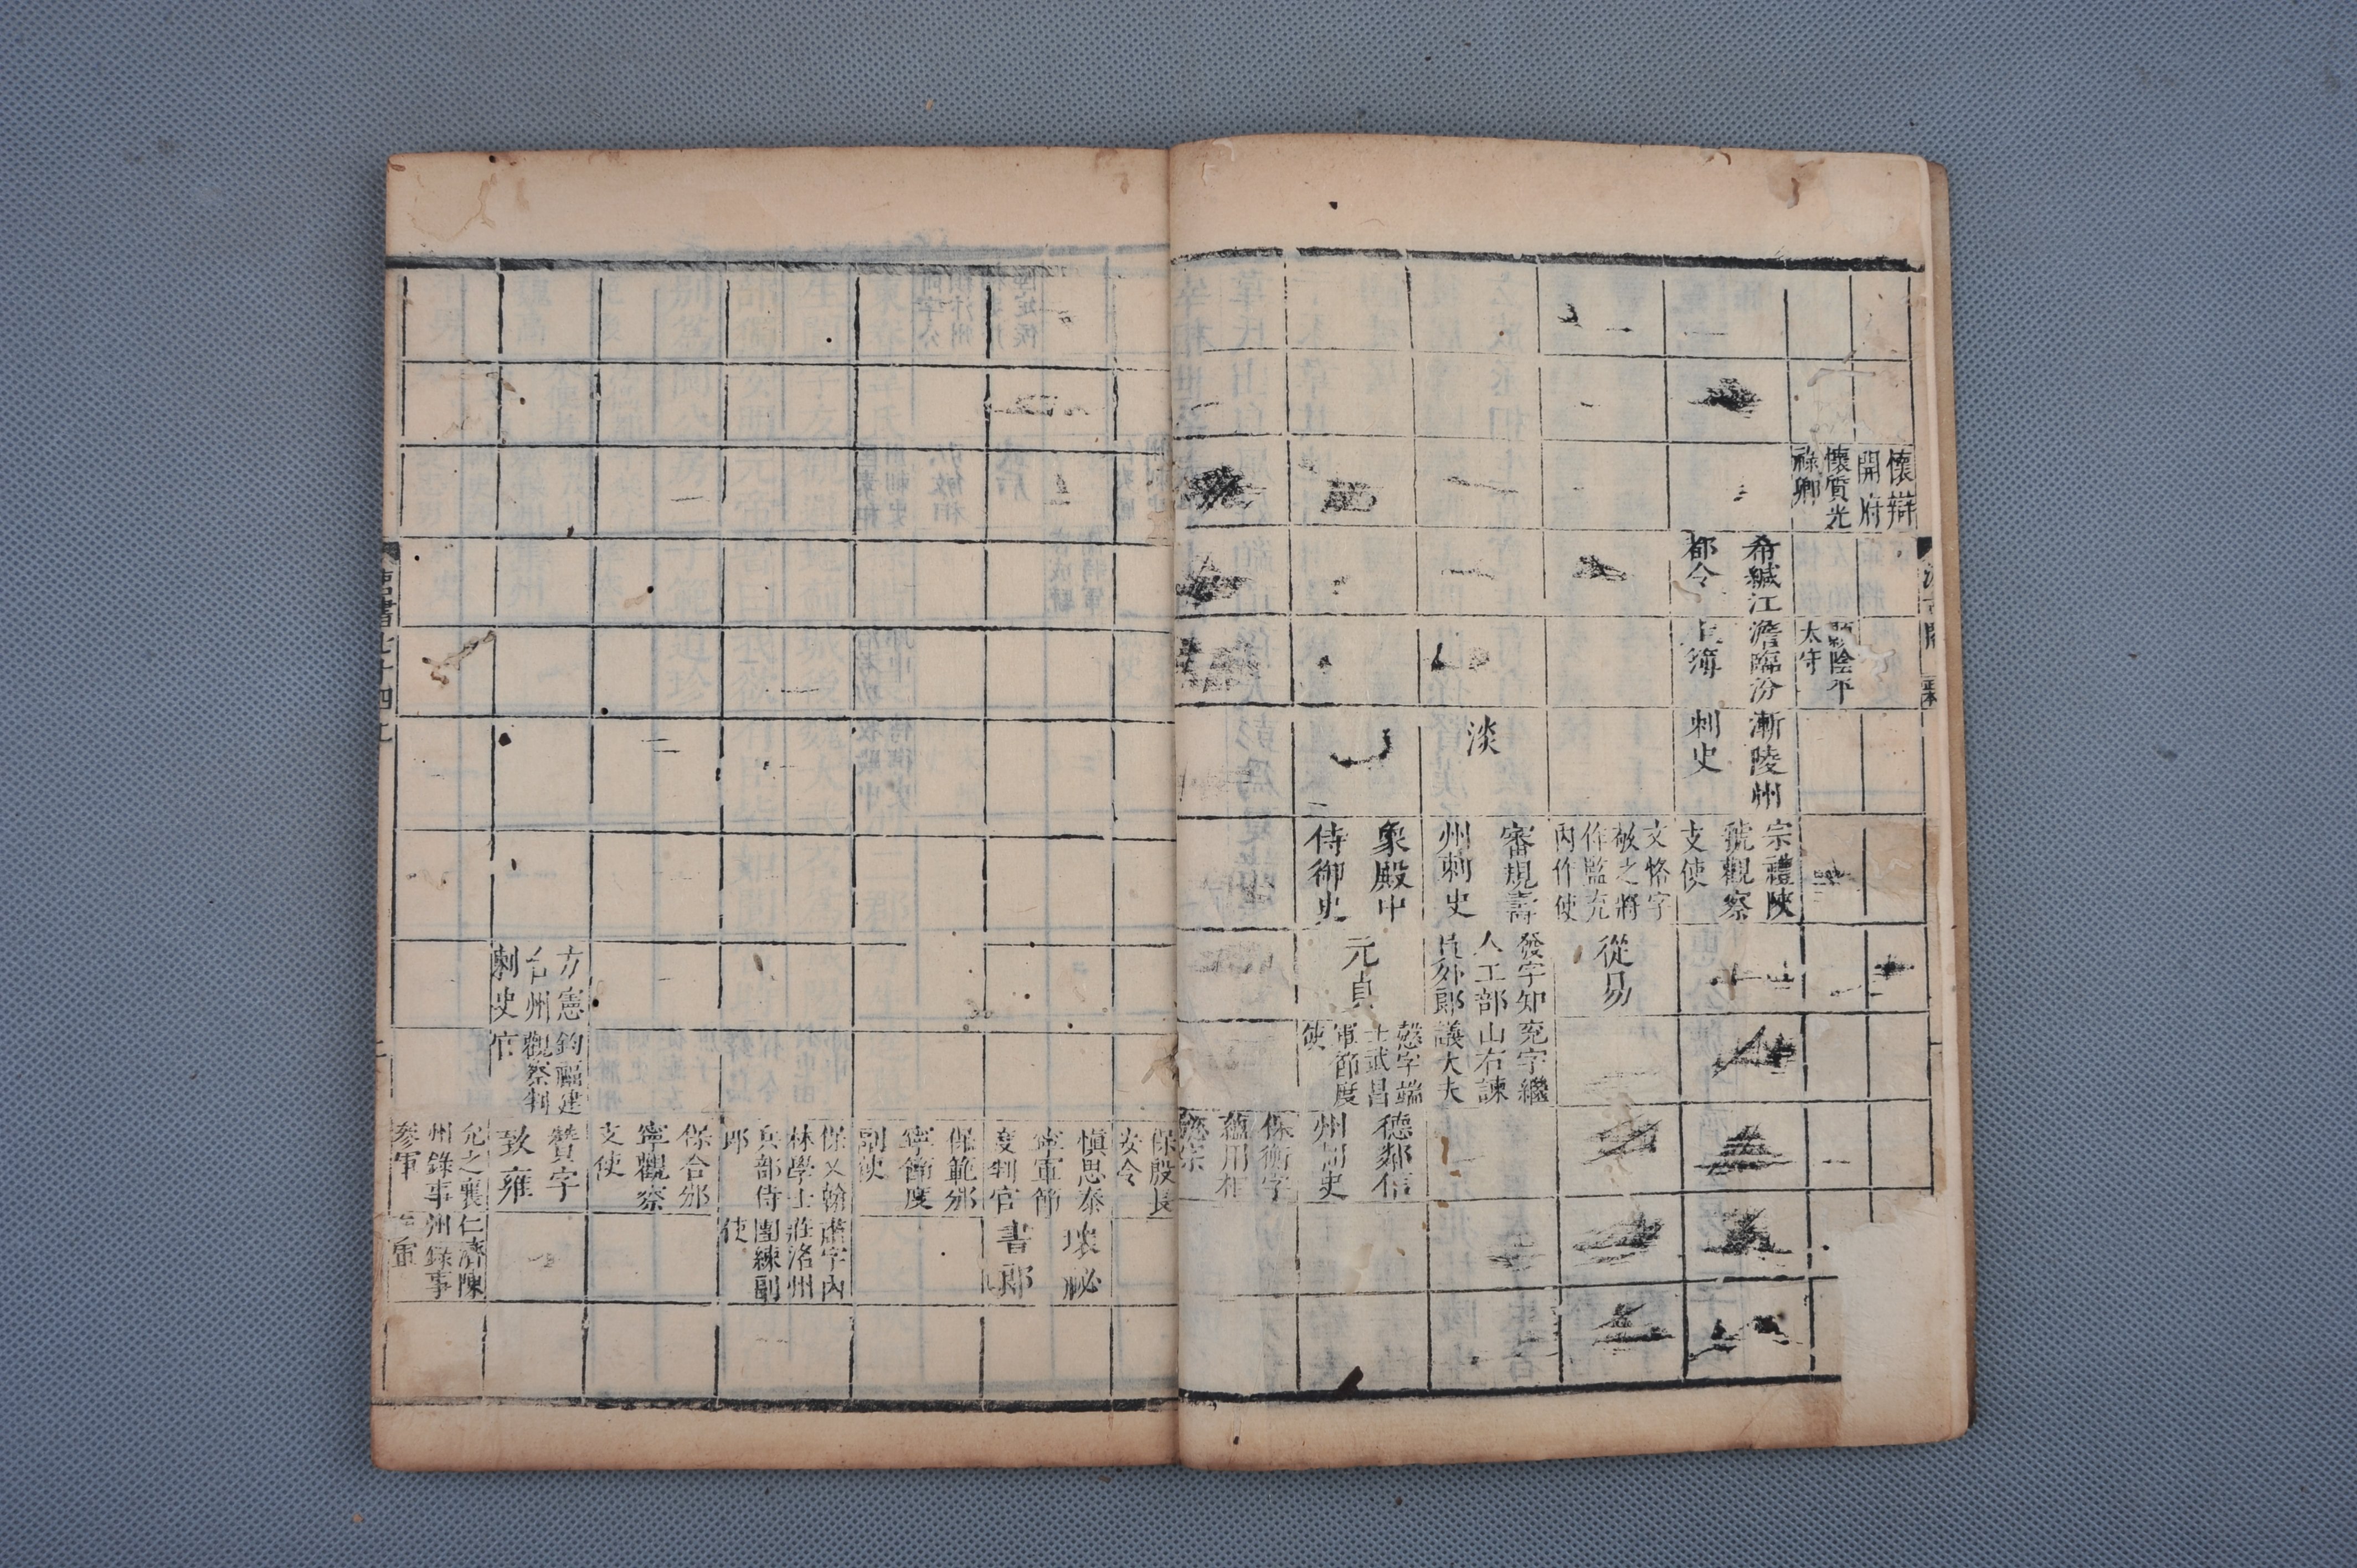 懷辯
開府
懷質光
祿卿
顯陰平
太守
希緘江
都令
澹臨汾
主簿
漸陵州
刺史
宗禮陜
虢觀察
支使
文恪字
敬之將
作監充
內作使
從易
淡
審規壽
州刺史
發字知
人工部
員外郎
兗字繼
山右諫
議大夫
象殿中
侍御史
元貞
愨字端
士武昌
軍節度
使
德鄰信
州刺史
保衡字
蘊用相
懿宗
保殷長
安令
慎思泰
寧軍節
度判官
壞祕
書郎
保範邠
寧節度
副使
保乂翰
林學士
兵部侍
郎
肅字內
莊洛州
團練副
使
保合邠
寧觀察
支使
方憲
台州
刺史
鈞福建
觀察判
官
贊字
致雍
允之襄
州錄事
參軍
仁濟陳
州錄事
參軍
唐書七十四上